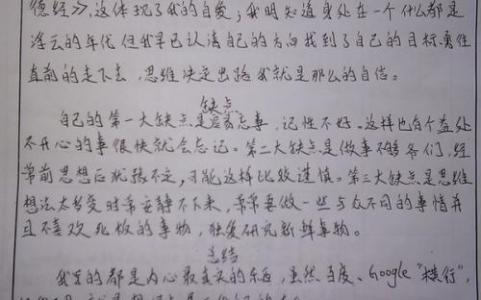 德经》，这体现了我的自爱；我明知道身处在一个什么都是
浮云的年代但我早已认清自己的方向找到了自己的目标勇往
直前的走下去，思维决定出路我就是那么的自信。
缺点
自己的第一大缺点是容易忘事，记性不好。这样也有个益处
不开心的事很快就会忘记。第二大缺点是做事不够爷们，经
常前思想后犹豫不定，可能这样比较谨慎。第三大缺点是思维
想法太多变时常安静不下来，常常要做一些与众不同的事情并
且不喜欢死板的事物，独爱研究新鲜事物。
总结
我写的都是内心最真实的东西，虽然百度、Google“横行”，